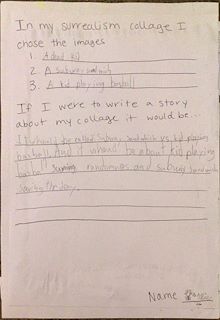 In my surrealism collage I
chose the images
1. A dead kid
2. A subway sandwich
3. A kid playing basball
If I were to write a story
about my collage it would be...
It whould be called Subway sandwich vs. kid playing
basball and it whould be about kid playing
basball randomness and subway sandwich
Name